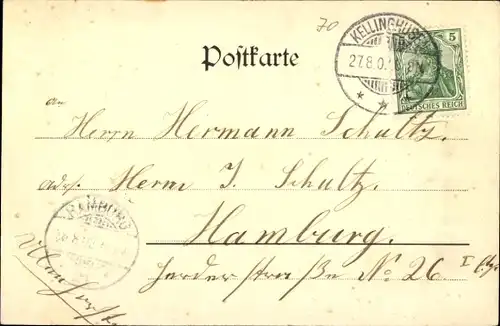 70
Postkarte
KELLINGHUSEN
27.8.0
5
DEUTSCHES REICH
an
Herrn Hermann Schultz.
adr. Herrn J. Schultz.
Hamburg.
HAMBURG
Herderstraße No 26 I